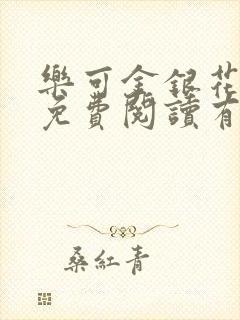 樂可金銀花
免費閱讀有
桑紅青